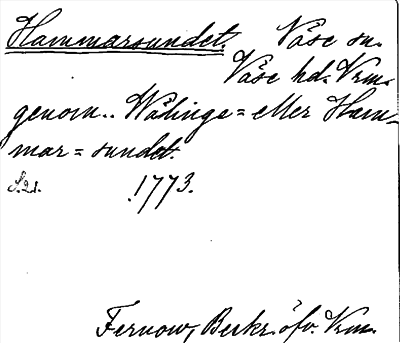 Hammarsundet. Väse sn.
Väse hd. Vrm.
genom.. Wålinge= eller Ham-
mar= sundet.
S.21. 1773.
Fernow, Beskr. öfv. Vrm.